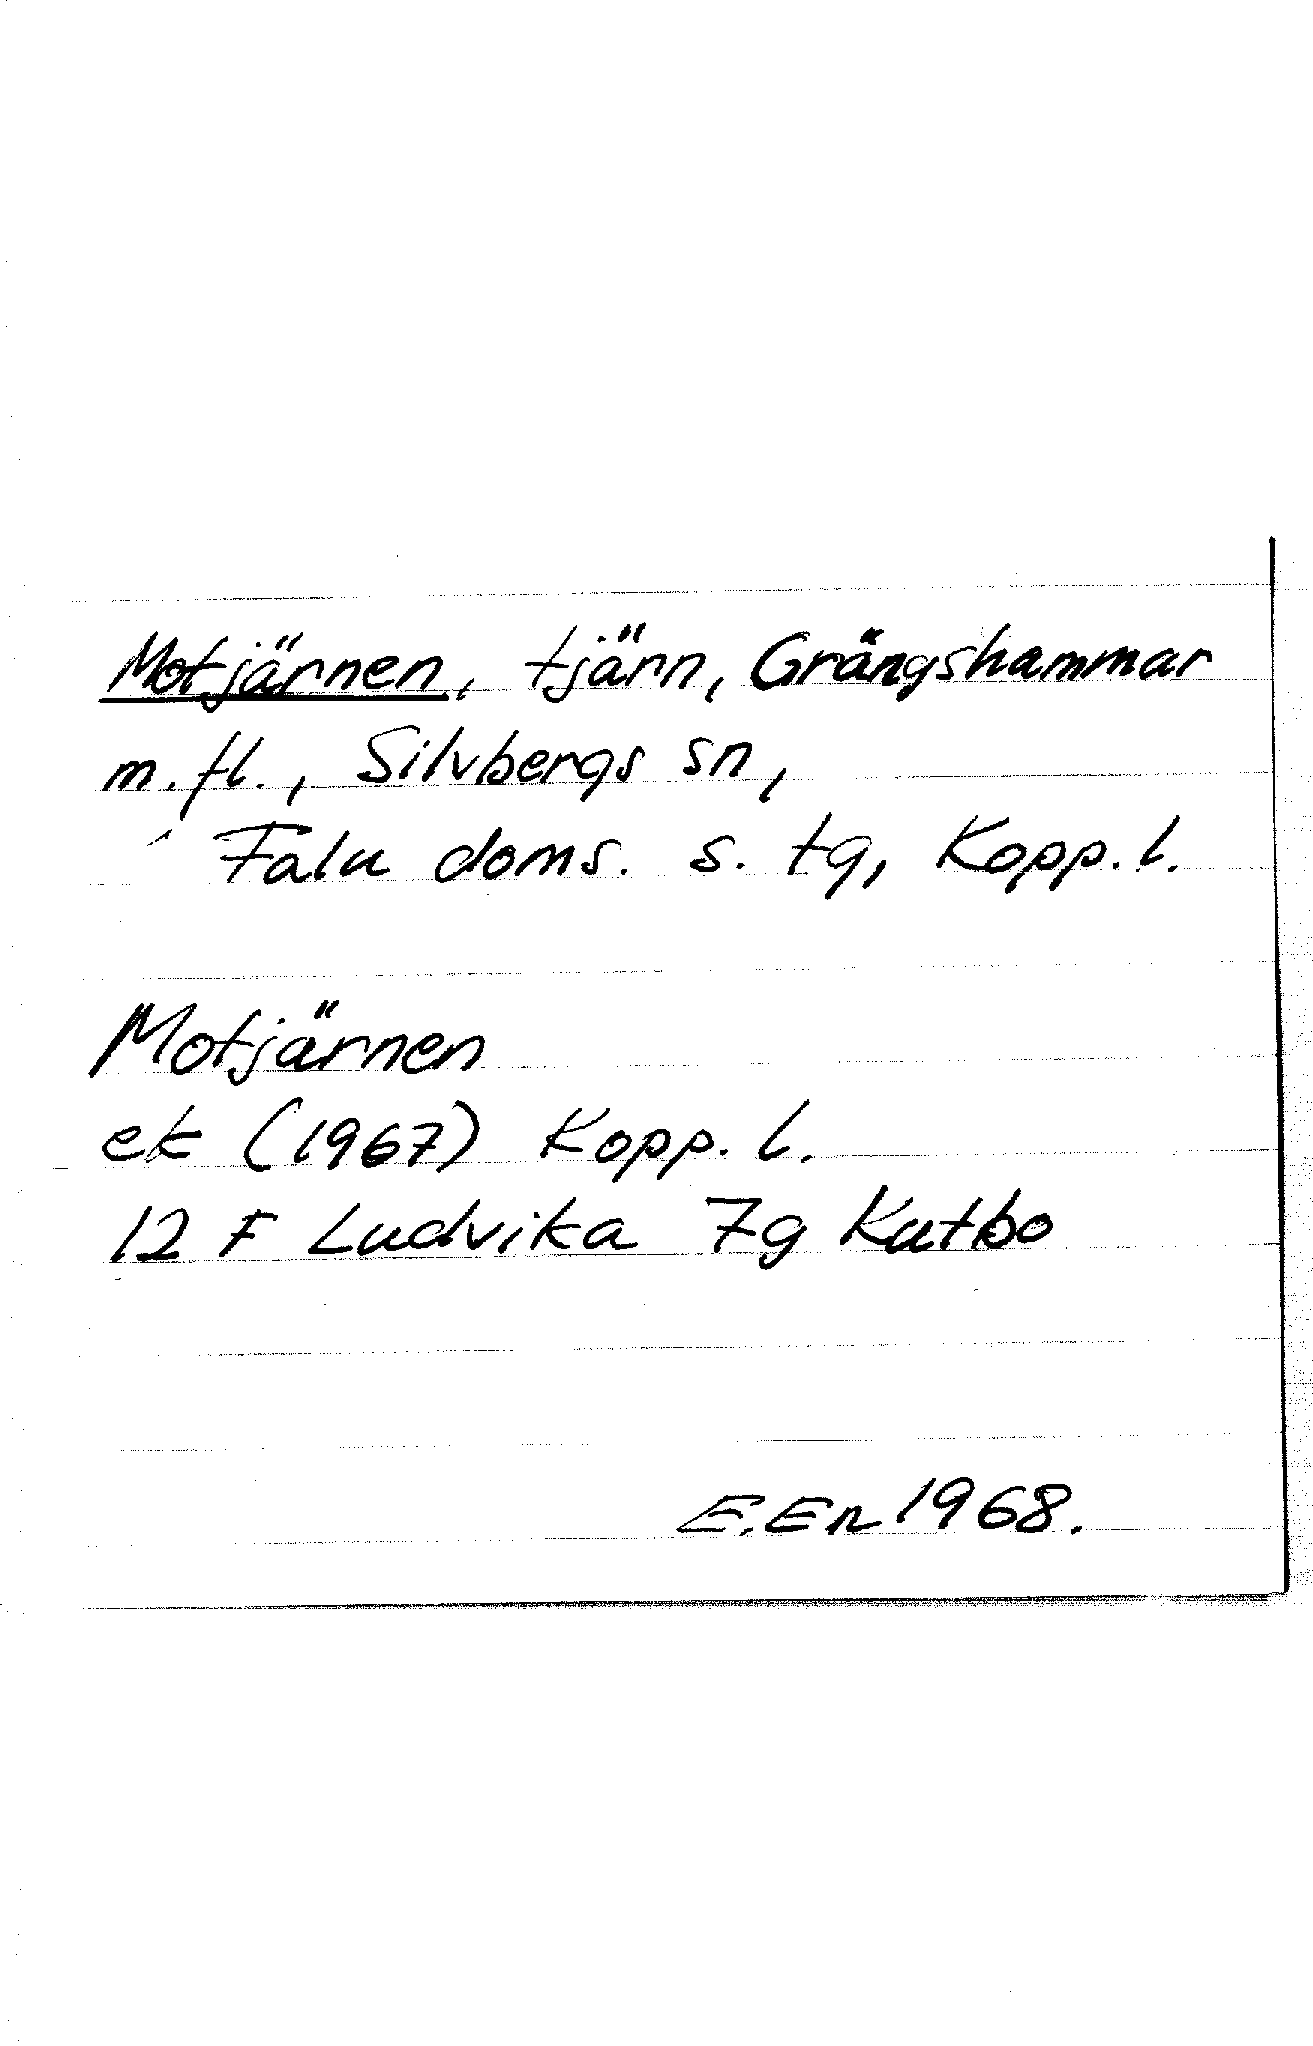 Motjärnen, tjärn, Grängshammar
m.fl., Silvbergs sn,
Falu doms. s. tg, Kopp. l.
Motjärnen
ek (1967) Kopp. l.
12 F Ludvika 7g Kutbo
E.En 1968.